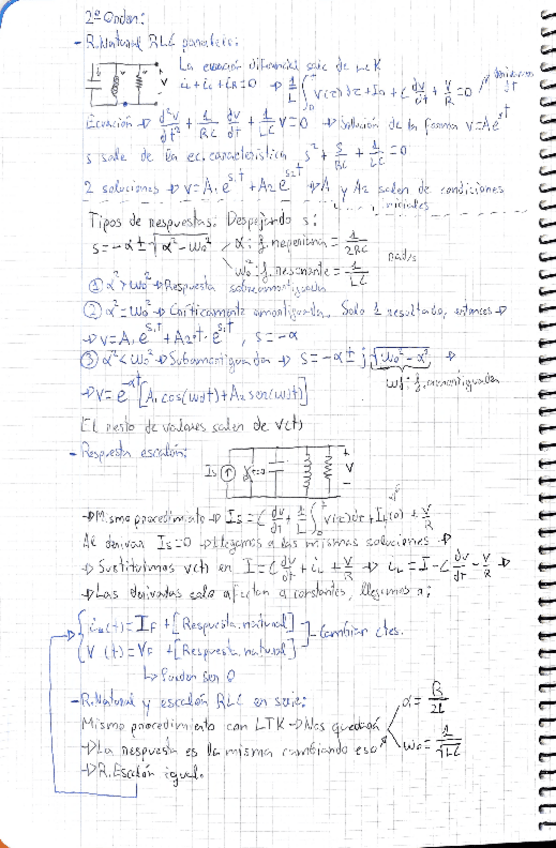 2º Orden:
- R. Natural RLC paralelo:
La ecuación diferencial sale de LCK
iL + ic + iR = 0 → 1/L ∫₀ᵗ v(τ)dτ + I₀ + C dv/dt + V/R = 0
Ecuación → d²v/dt² + 1/RC dv/dt + 1/LC v = 0 → Solución de la forma v = Ae^st
s sale de la ec. característica s² + s/RC + 1/LC = 0
2 soluciones → v = A₁e^s₁t + A₂e^s₂t → A₁ y A₂ salen de condiciones
iniciales
Tipos de respuestas: Despejando s:
s = -α ± √(α² - ω₀²) α: f. neperiana = 1/2RC
ω₀²: f. resonante = 1/LC rad/s
① α² > ω₀² → Respuesta sobreamortiguada
② α² = ω₀² → Críticamente amortiguada. Solo 1 resultado, entonces →
→ v = A₁e^s₁t + A₂·t·e^s₁t, s = -α
③ α² < ω₀² → Subamortiguada → s = -α ± j√(ω₀² - α²) →
ωd: f. amortiguada
→ v = e^-αt [A₁ cos(ωdt) + A₂ sen(ωdt)]
El resto de valores salen de v(t)
- Respuesta escalón:
Is t=0 + V -
→ Mismo procedimiento → Is = C dv/dt + 1/L ∫₀ᵗ v(τ)dτ + IL(0) + V/R
Al derivar Is = 0 → Llegamos a las mismas soluciones →
→ Sustituimos v(t) en I = C dv/dt + iL + V/R → iL = I - C dv/dt - V/R →
→ Las derivadas solo afectan a constantes, llegamos a:
iL(t) = IF + [Respuesta natural]
V(t) = VF + [Respuesta natural] Cambiar ctes.
↳ Pueden ser 0
- R. Natural y escalón RLC en serie:
Mismo procedimiento con LTK → Nos quedará α = R/2L
→ La respuesta es la misma cambiando eso ω₀ = 1/√LC
→ R. Escalón igual.